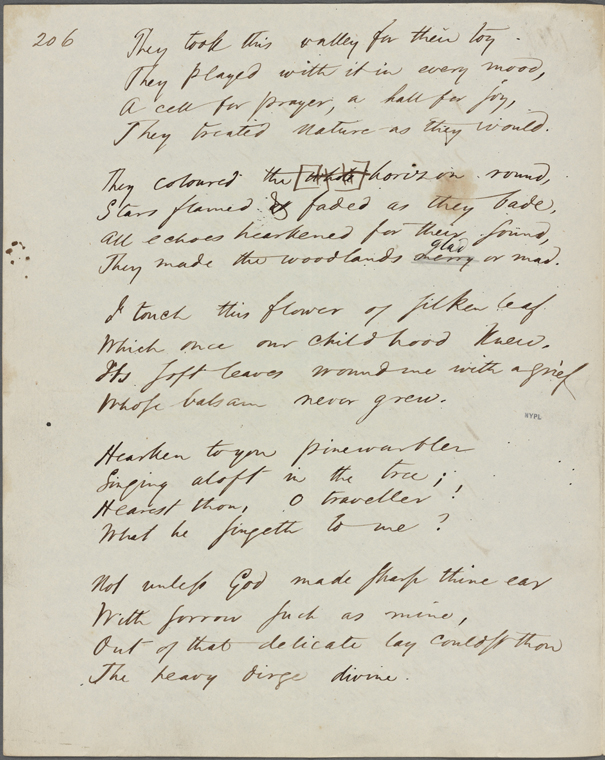 206
They took this valley for their toy.
They played with it in every mood,
A cell for prayer, a hall for joy,
They treated Nature as they would.
They coloured the whole horizon round,
Stars flamed & faded as they bade,
All echoes hearkened for their sound,
glad
They made the woodlands merry or mad.
I touch this flower of silken leaf
Which once our childhood knew.
Its soft leaves wound me with a grief
Whose balsam never grew.
Hearken to yon pinewarbler
Singing aloft in the tree;
Hearest thou, O traveller!
What he singeth to me?
Not unless God made sharp thine ear
With sorrow such as mine,
Out of that delicate lay couldst thou
The heavy dirge divine.
NYPL